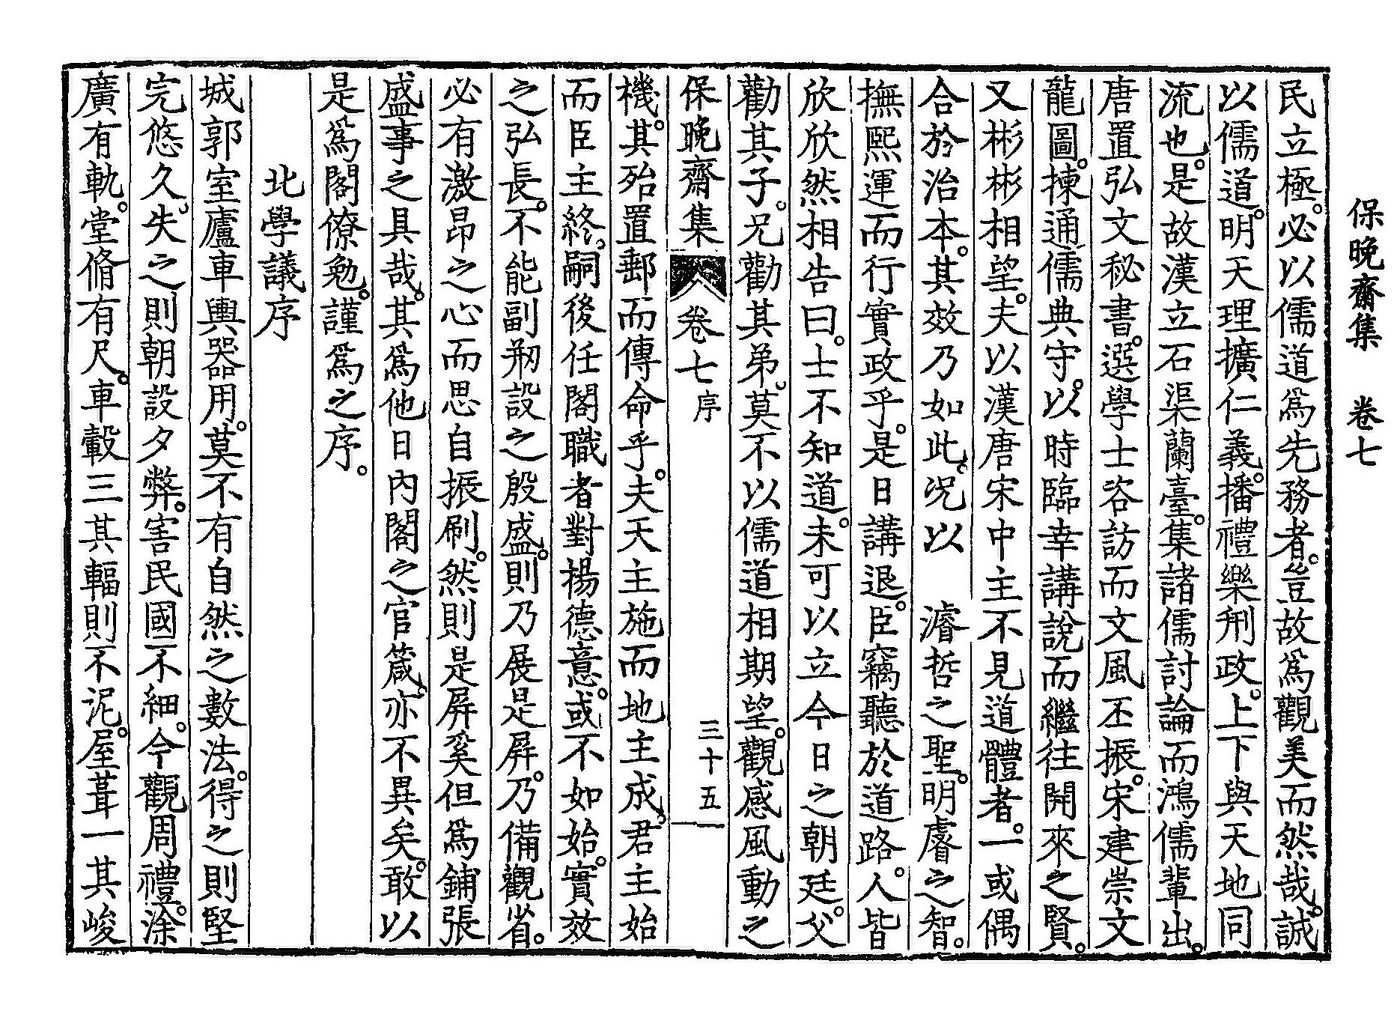 保晚齋集 卷七
民立極。必以儒道爲先務者。豈故爲觀美而然哉。誠
以儒道。明天理擴仁義。播禮樂刑政。上下與天地同
流也。是故漢立石渠蘭臺。集諸儒討論而鴻儒輩出。
唐置弘文秘書。選學士咨訪而文風丕振。宋建崇文
龍圖。揀通儒典守。以時臨幸講說而繼往開來之賢。
又彬彬相望。夫以漢唐宋中主不見道體者。一或偶
合於治本。其效乃如此。况以 濬哲之聖。明睿之智。
撫熙運而行實政乎。是日講退。臣竊聽於道路。人皆
欣欣然相告曰。士不知道。未可以立今日之朝廷。父
勸其子。兄勸其弟。莫不以儒道相期望。觀感風動之
保晚齋集 卷七 序 三十五
機。其殆置郵而傳命乎。夫天主施而地主成。君主始
而臣主終。嗣後任閣職者對揚德意。或不如始。實效
之弘長。不能副刱設之殷盛。則乃展是屛。乃備觀省。
必有激昂之心而思自振刷。然則是屛奚但爲鋪張
盛事之具哉。其爲他日內閣之官箴。亦不異矣。敢以
是爲閣僚勉。謹爲之序。
北學議序
城郭室廬車輿器用。莫不有自然之數法。得之則堅
完悠久。失之則朝設夕弊。害民國不細。今觀周禮。涂
廣有軌。堂脩有尺。車轂三其輻則不泥。屋葺一其峻